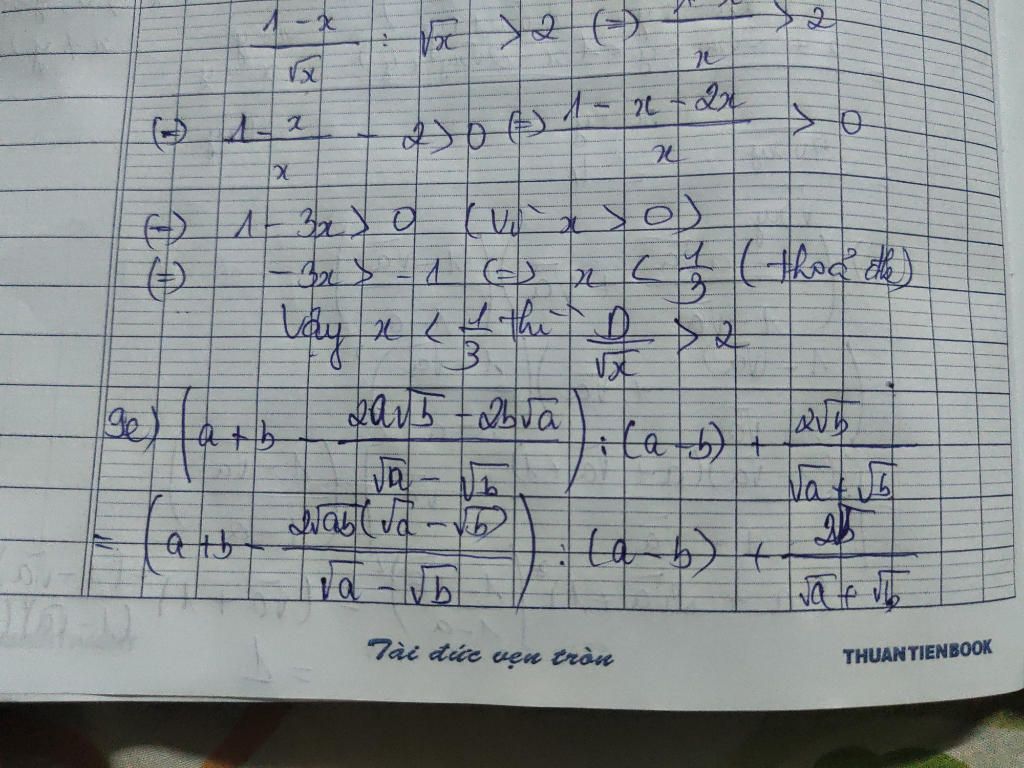 1 - x / √x : √x > 2 (=) 1 - x / x > 2
(=) 1 - x / x - 2 > 0 (=) 1 - x - 2x / x > 0
(=) 1 - 3x > 0 (Vì x > 0)
(=) -3x > -1 (=) x < 1/3 (thoả đk)
Vậy x < 1/3 thì D/√x > 2
9e) (a + b - 2a√b - 2b√a / √a - √b) : (a - b) + 2√b / √a + √b
= (a + b - 2√ab(√a - √b) / √a - √b) : (a - b) + 2b / √a + √b
Tài đức vẹn tròn
THUANTIENBOOK